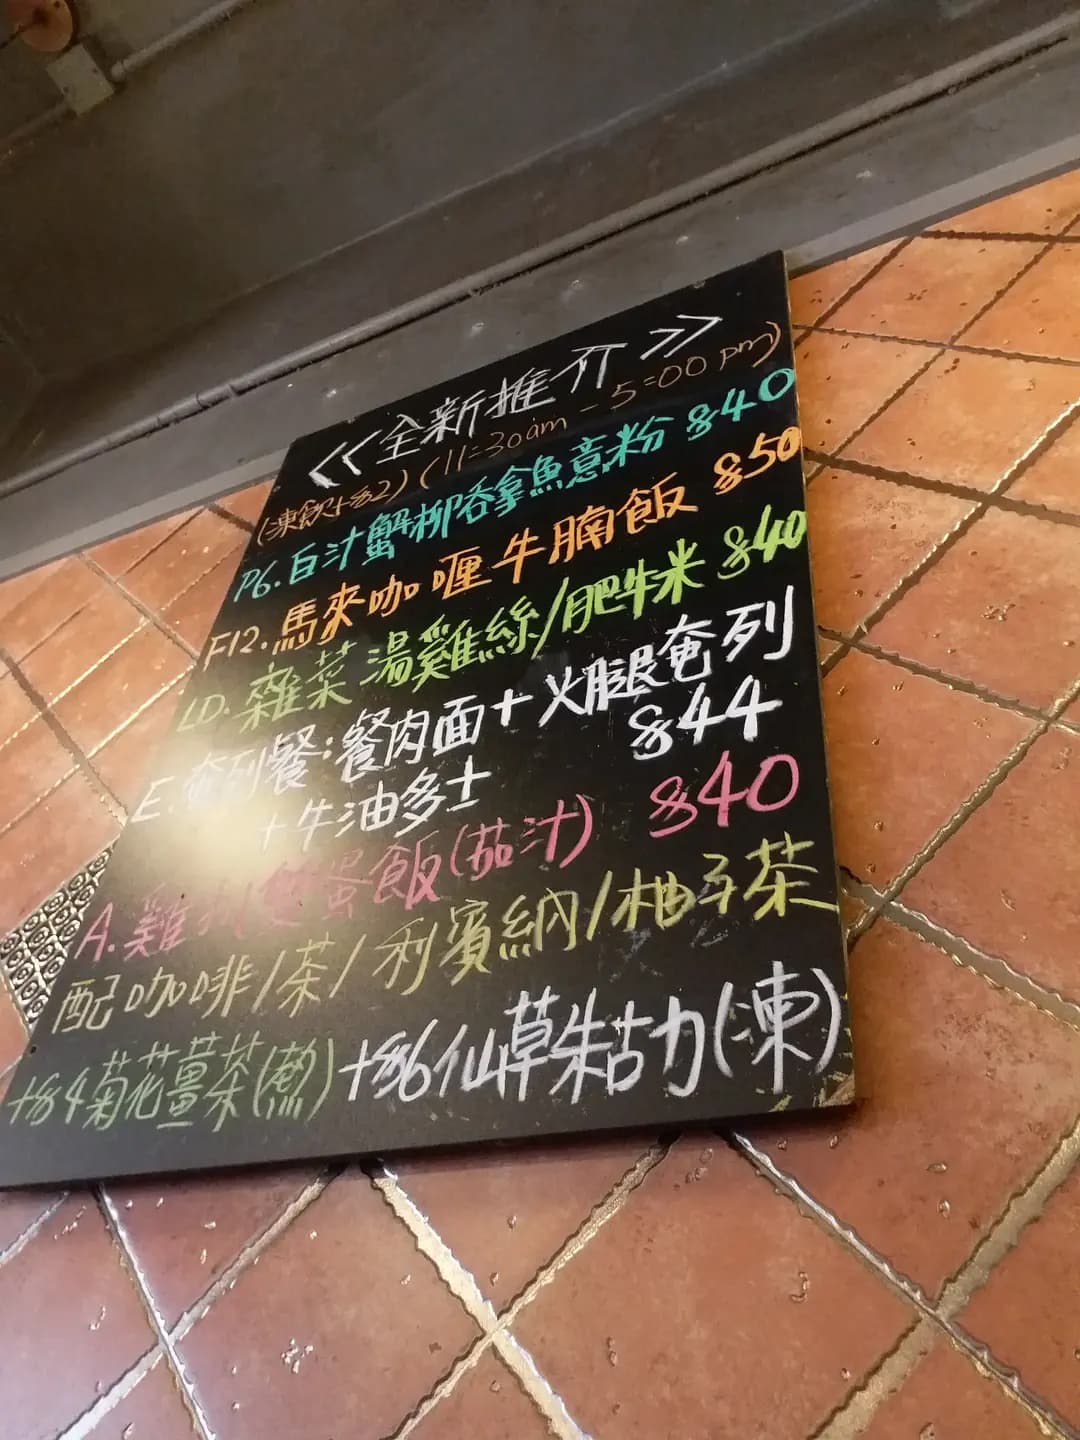 <<全新推介>>
(凍飲+$2) (11:30am - 5:00pm)
P6. 白汁蟹柳吞拿魚意粉 $40
F12. 馬來咖喱牛腩飯 $50
LD. 雜菜湯雞絲/肥牛米 $40
E. 奄列餐:餐肉面+火腿奄列
+牛油多士 $44
A. 雞扒雙蛋飯(茄汁) $40
配咖啡/茶/利賓納/柚子茶
+$4菊花薑茶(熱) +$6仙草朱古力(凍)